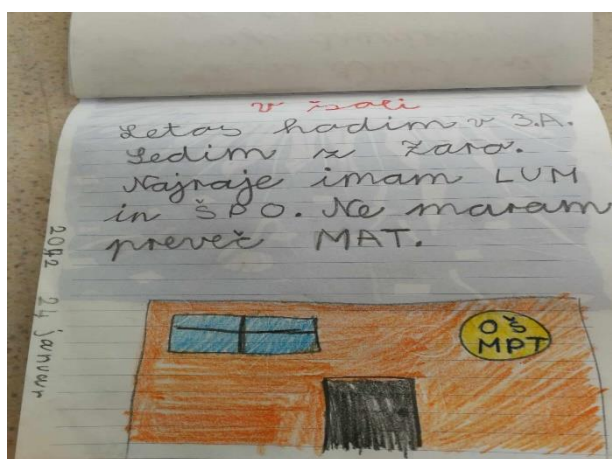 v šoli
Letos hodim v 3.A.
Sedim z Zaro.
Najraje imam LUM
in ŠPO. Ne maram
preveč MAT.
24 januar
OŠ
MPT